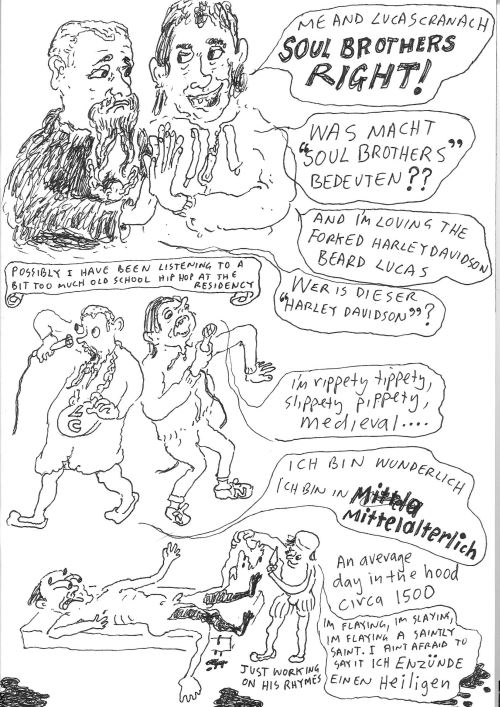 ME AND LUCASCRANACH
SOUL BROTHERS
RIGHT!
WAS MACHT
"SOUL BROTHERS"
BEDEUTEN??
AND IM LOVING THE
FORKED HARLEY DAVIDSON
BEARD LUCAS
POSSIBLY I HAVE BEEN LISTENING TO A
BIT TOO MUCH OLD SCHOOL HIP HOP AT THE
RESIDENCY
WER IS DIESER
"HARLEY DAVIDSON"?
LC
i'm rippety tippety,
slippety pippety,
medieval....
ICH BIN WUNDERLICH
ICH BIN IN Mittela
Mittelalterlich
An average
day in the hood
circa 1500
IM FLAYING, IM SLAYING,
IM FLAYING A SAINTLY
SAINT. I AINT AFRAID TO
SAY IT ICH ENZÜNDE
EINEN Heiligen
JUST WORKING
ON HIS RHYMES